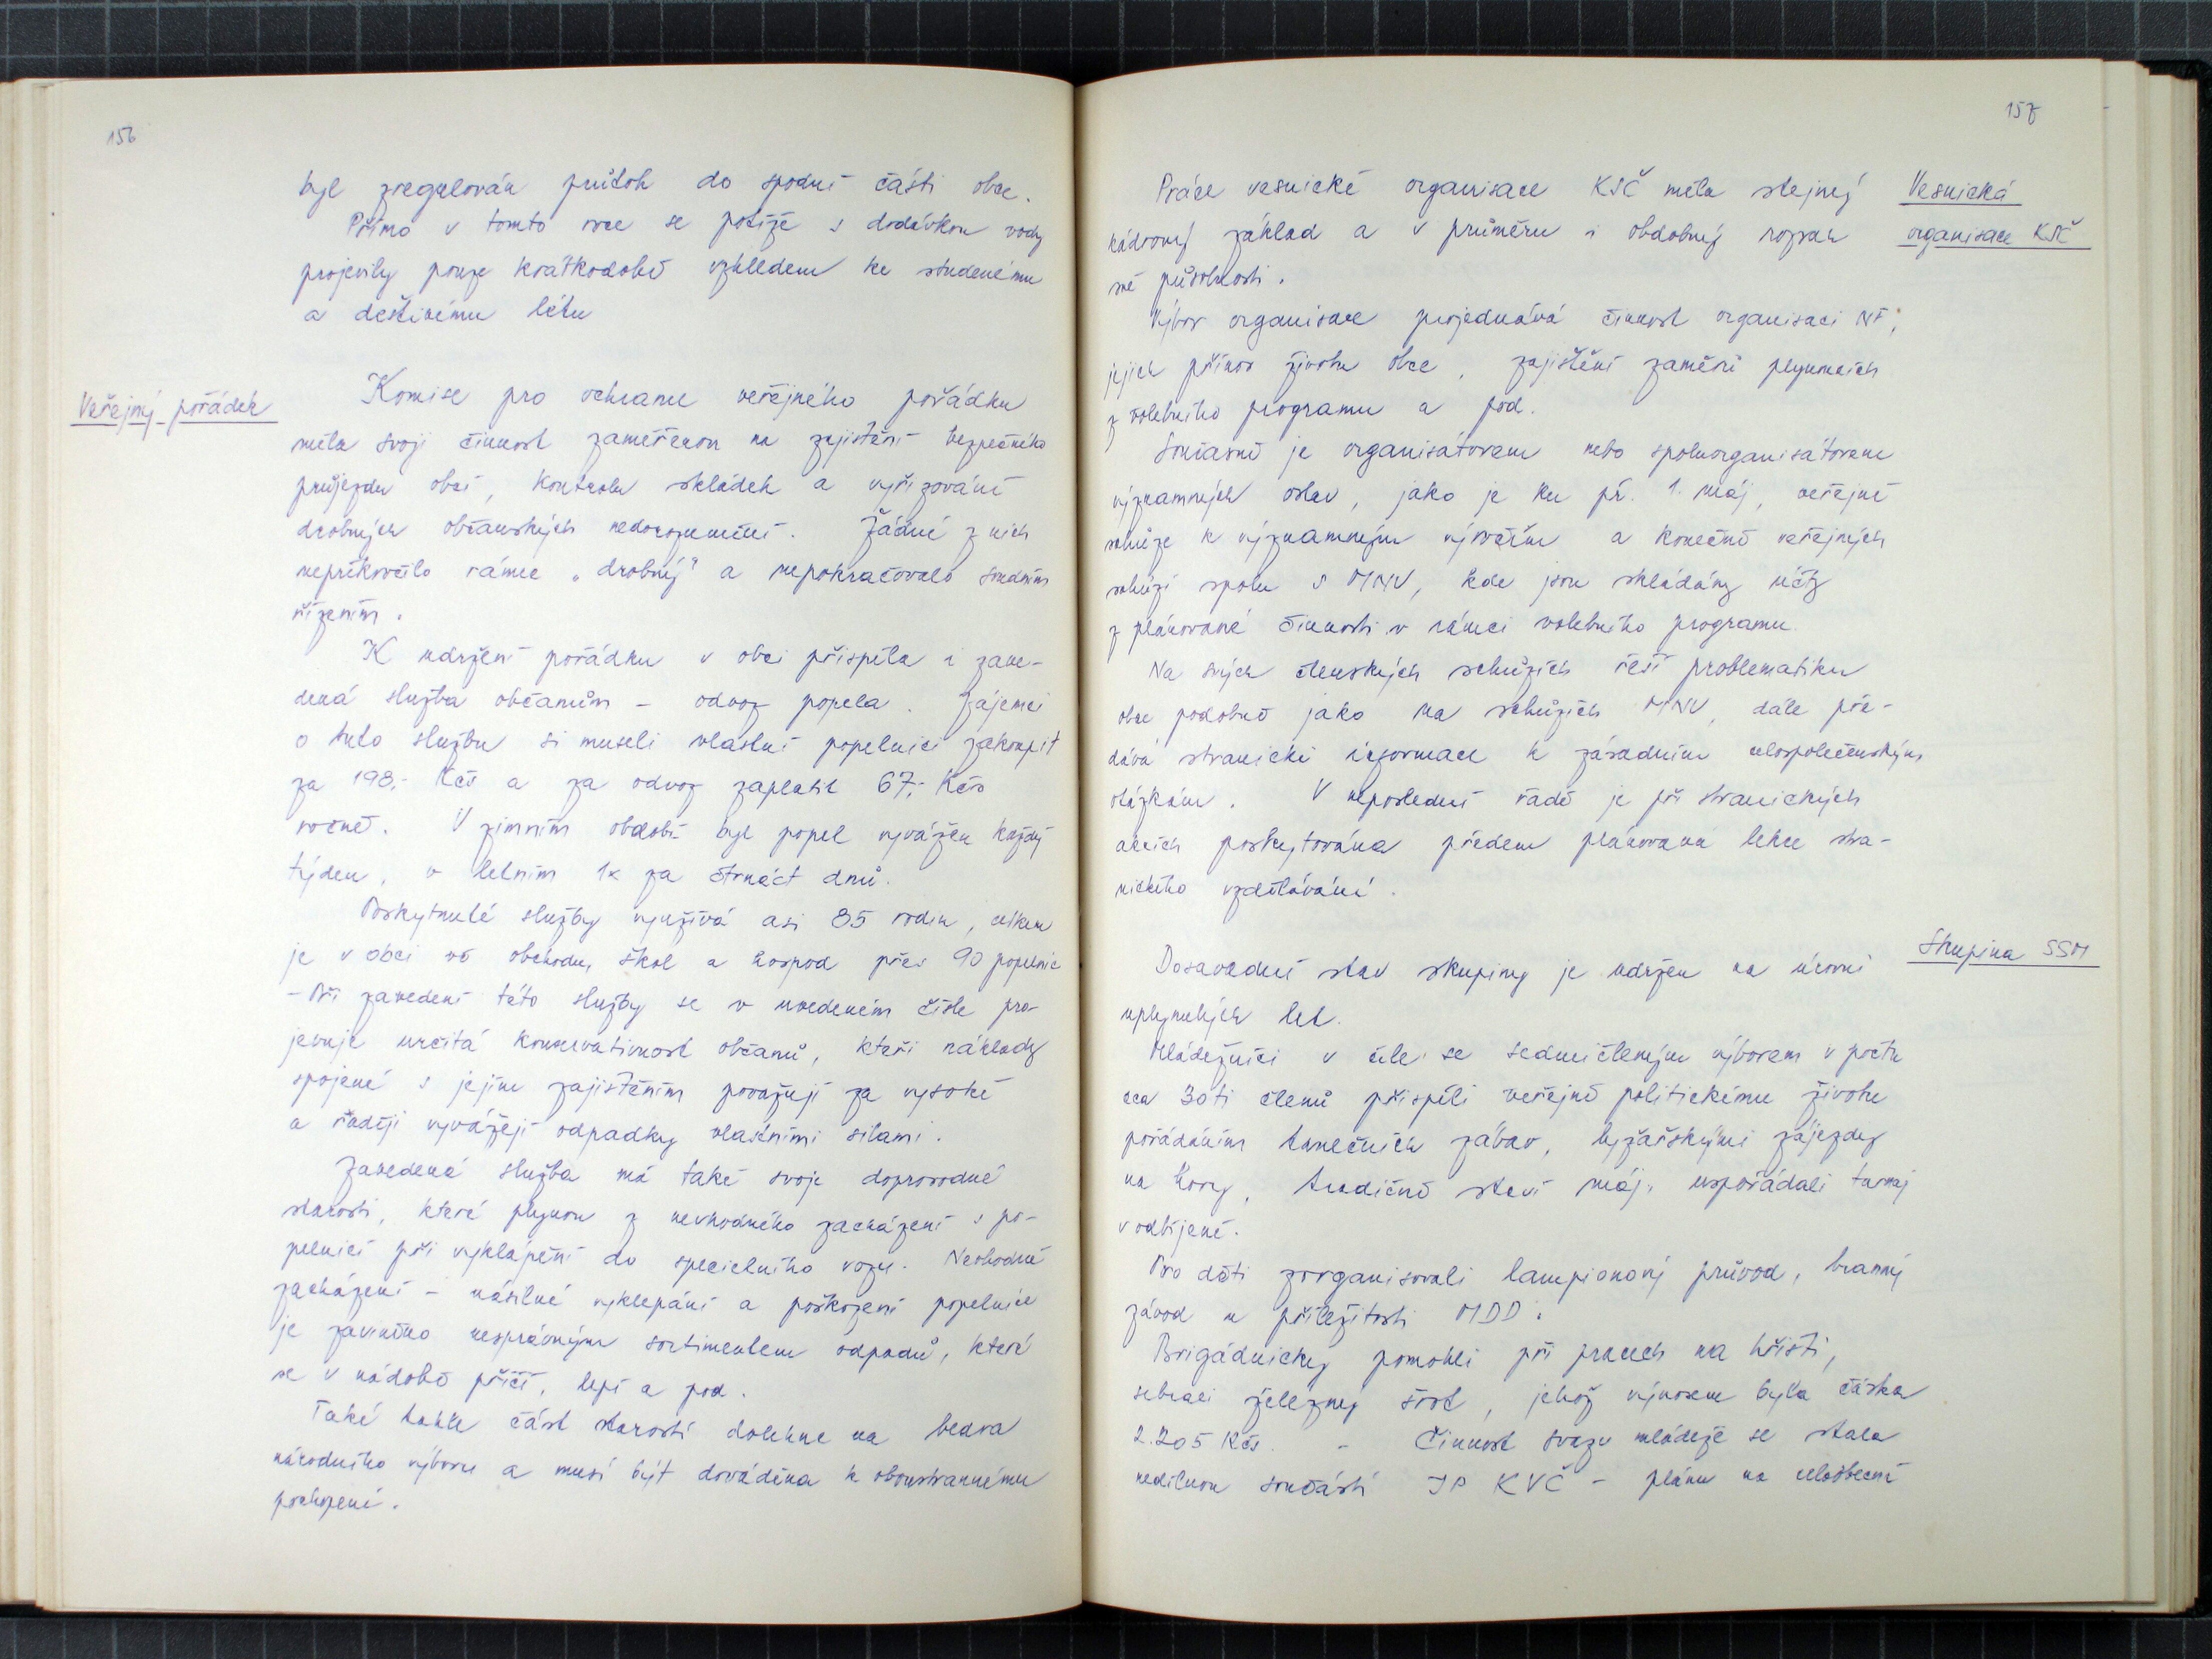 156
byl zregulován průtok do spodní části obce.
Přímo v tomto roce se potíže s dodávkou vody
projevily pouze krátkodobě vzhledem ke studenému
a deštivému létu
Veřejný pořádek
Komise pro ochranu veřejného pořádku
měla svoji činnost zaměřenou na zajistění bezpečného
průjezdu obcí, kontrolu skládek a vyřizování
drobných občanských nedorozumění. Žádné z nich
nepřekročilo rámec "drobný" a nepokračovalo soudním
řízením.
K udržení pořádku v obci přispěla i zave-
dená služba občanům - odvoz popela. Zájemci
o tuto službu si museli vlastní popelnici zakoupit
za 198,- Kčs a za odvoz zaplatit 67,- Kčs
ročně. V zimním období byl popel vyvážen každý
týden, v letním 1x za čtrnáct dnů.
Poskytnuté služby využívá asi 85 rodin, celkem
je v obci vč obchodu, škol a hospod přes 90 popelnic
- Při zavedení této služby se v uvedeném čísle pro-
jevuje určitá konservativnost občanů, kteří náklady
spojené s jejím zajištěním považují za vysoké
a raději vyvážejí odpadky vlastními silami.
Zavedená služba má také svoje doprovodné
starosti, které plynou z nevhodného zacházení s po-
pelnicí při vyklápění do specielního vozu. Nevhodné
zacházení - násilné vyklepání a poškození popelnice
je zaviněno nesprávným sortimentem odpadů, které
se v nádobě příčí, lepí a pod.
Také tahle část starostí dolehne na bedra
národního výboru a musí být dováděna k oboustrannému
pochopení.
157
Práce vesnické organisace KSČ měla stejný
Vesnická
organisace KSČ
kádrový základ a v průměru i obdobný rozsah
své působnosti.
Výbor organisace projednává činnost organisací NF,
jejich přínos životu obce, zajištění záměrů plynoucích
z volebního programu a pod.
Současně je organisátorem nebo spoluorganisátorem
významných oslav, jako je ku př. 1. máj, veřejné
schůze k významným výročím a konečně veřejných
schůzí spolu s MNV, kde jsou skládány účty
z plánované činnosti v rámci volebního programu.
Na svých členských schůzích řeší problematiku
obce podobně jako na schůzích MNV, dále pře-
dává stranické informace k zásadním celospolečenským
otázkám. V neposlední řadě je při stranických
akcích poskytována předem plánovaná lekce stra-
nického vzdělávání.
Skupina SSM
Dosavadní stav skupiny je udržen na úrovni
uplynulých let.
Mládežníci v čele se sedmičlenným výborem v počtu
cca 30ti členů přispěli veřejně politickému životu
pořádáním tanečních zábav, lyžařskými zájezdy
na hory, tradičně staví máj, uspořádali turnaj
v odbíjené.
Pro děti zorganisovali lampionový průvod, branný
závod u příležitosti MDD.
Brigádnicky pomohli při pracech na hřišti,
sebrali železný šrot, jehož výnosem byla částka
2.205 Kčs. - Činnost svazu mládeže se stala
nedílnou součástí JP KVČ - plánu na celoobecní